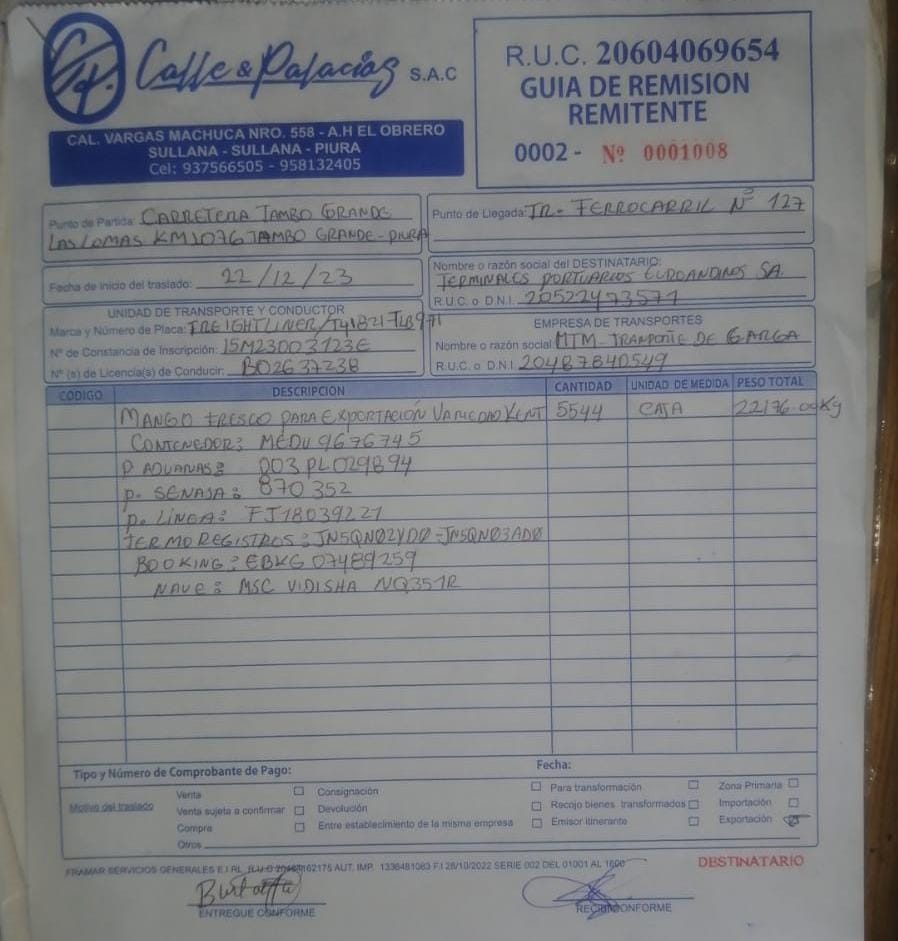 Calle & Palacios S.A.C
CAL. VARGAS MACHUCA NRO. 558 - A.H EL OBRERO
SULLANA - SULLANA - PIURA
Cel: 937566505 - 958132405
R.U.C. 20604069654
GUIA DE REMISION
REMITENTE
0002 - Nº 0001008
Punto de Partida: CARRETERA TAMBO GRANDE
LAS LOMAS KM1076 TAMBO GRANDE - PIURA
Punto de Llegada: JR. FERROCARRIL Nº 127
Fecha de inicio del traslado: 22/12/23
Nombre o razón social del DESTINATARIO:
TERMINALES PORTUARIOS EUROANDINOS SA.
R.U.C. o D.N.I. 20522473571
UNIDAD DE TRANSPORTE Y CONDUCTOR
Marca y Número de Placa: FREIGHTLINER/
Nº de Constancia de Inscripción: 15M23003123E
Nº (s) de Licencia(s) de Conducir: B02637238
EMPRESA DE TRANSPORTES
Nombre o razón social MTM TRANPORTE DE CARGA
R.U.C. o D.N.I. 20487840549
CÓDIGO DESCRIPCIÓN CANTIDAD UNIDAD DE MEDIDA PESO TOTAL
MANGO FRESCO PARA EXPORTACIÓN VARIEDAD KENT 5544 CAJA 22176.00Kg
CONTENEDOR: MEDU 9676745
P. ADUANAS: 003 PL029894
P. SENASA: 870352
P. LÍNEA: FJ18039221
TERMOREGISTROS: JN5QN02YD0 - JN5QN03AD0
BOOKING: EBKG 07489259
NAVE: MSC VIDISHA NQ351R
Tipo y Número de Comprobante de Pago: Fecha:
Motivo del traslado
Venta
Consignación
Para transformación
Zona Primaria
Venta sujeta a confirmar
Devolución
Recojo bienes transformados
Importación
Compra
Entre establecimiento de la misma empresa
Emisor Itinerante
Exportación
Otros
FRAMAR SERVICIOS GENERALES E.I RL. R.U.C AUT. IMP. 1336481083 F.I 26/10/2022 SERIE 002 DEL 01001 AL 1600
DESTINATARIO
ENTREGUE CONFORME
RECIBI CONFORME